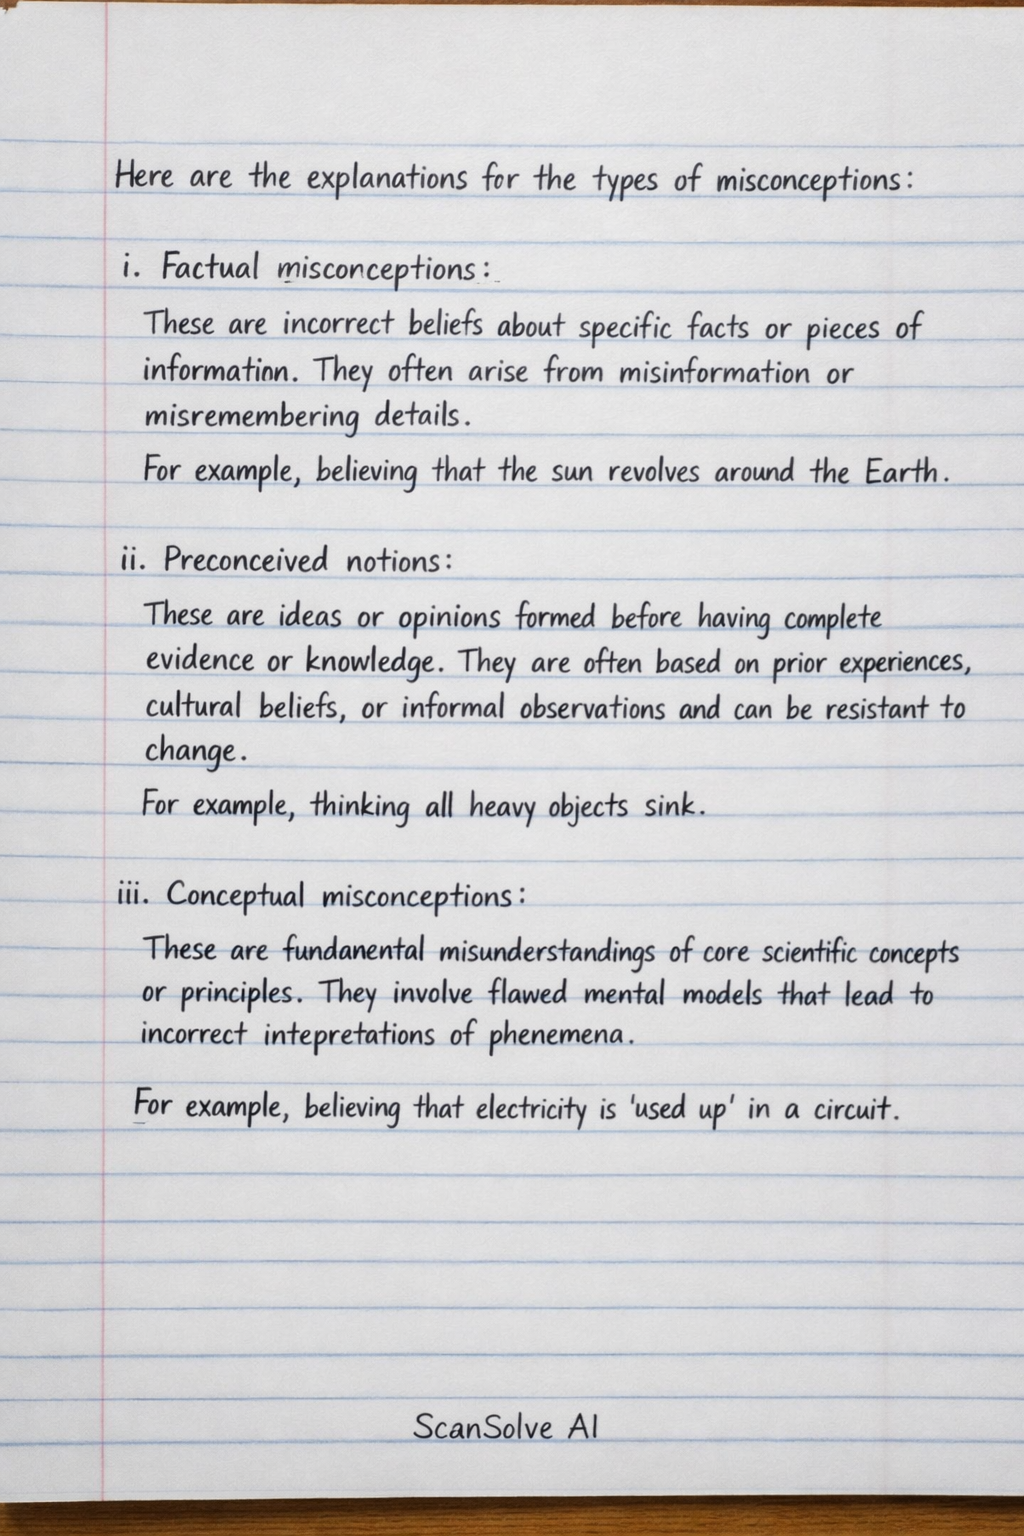 Here are the explanations for the types of misconceptions:
i. Factual misconceptions:
These are incorrect beliefs about specific facts or pieces of
information. They often arise from misinformation or
misremembering details.
For example, believing that the sun revolves around the Earth.
ii. Preconceived notions:
These are ideas or opinions formed before having complete
evidence or knowledge. They are often based on prior experiences,
cultural beliefs, or informal observations and can be resistant to
change.
For example, thinking all heavy objects sink.
iii. Conceptual misconceptions:
These are fundanental misunderstandings of core scientific concepts
or principles. They involve flawed mental models that lead to
incorrect intepretations of phenemena.
For example, believing that electricity is 'used up' in a circuit.
ScanSolve AI